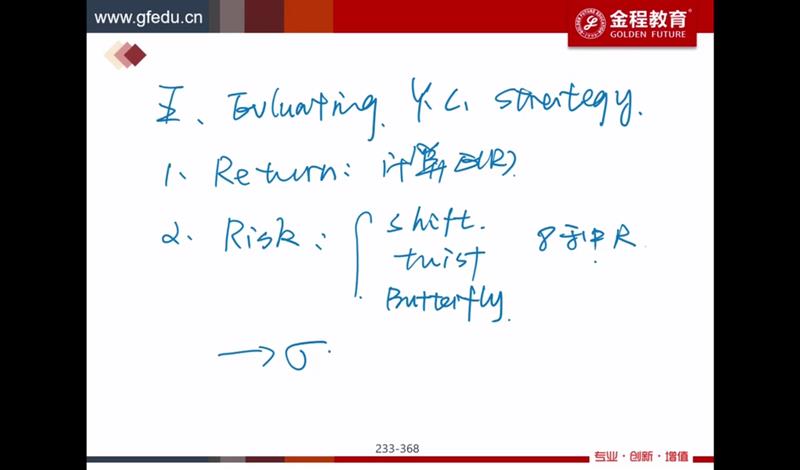 www.gfedu.cn
金程教育
GOLDEN FUTURE
五、Evaluating Y.C. strategy.
1、Return: 计算E(R)
2、Risk: shift.
twist 8种R
Butterfly
→σ
233-368
专业·创新·增值